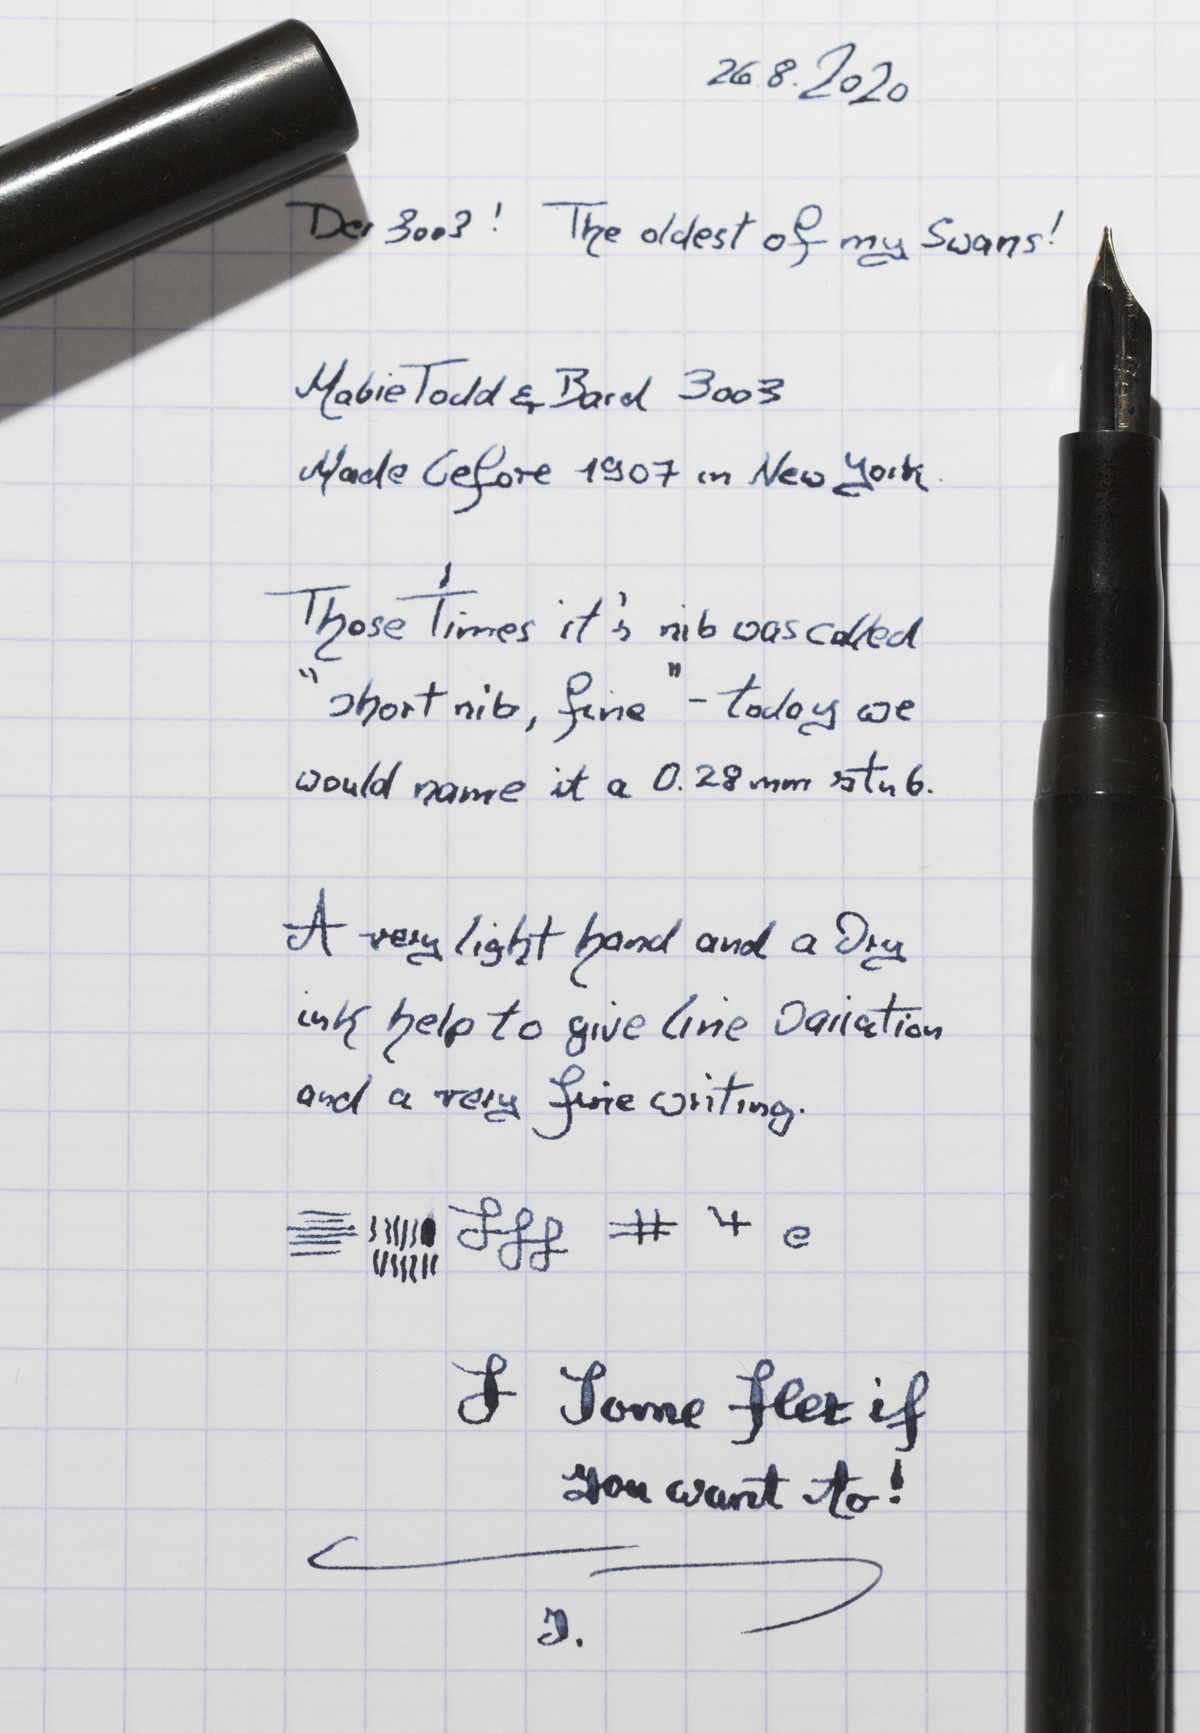 26.8.2020
Der 3003! The oldest of my Swans!
Mabie Todd & Bard 3003
Made before 1907 in New York.
Those Times it's nib was called
"short nib, fine" - today we
would name it a 0.28mm stub.
A very light hand and a Dry
ink help to give line variation
and a very fine writing.
fff # 4 e
f Some flex if
you want to!
J.